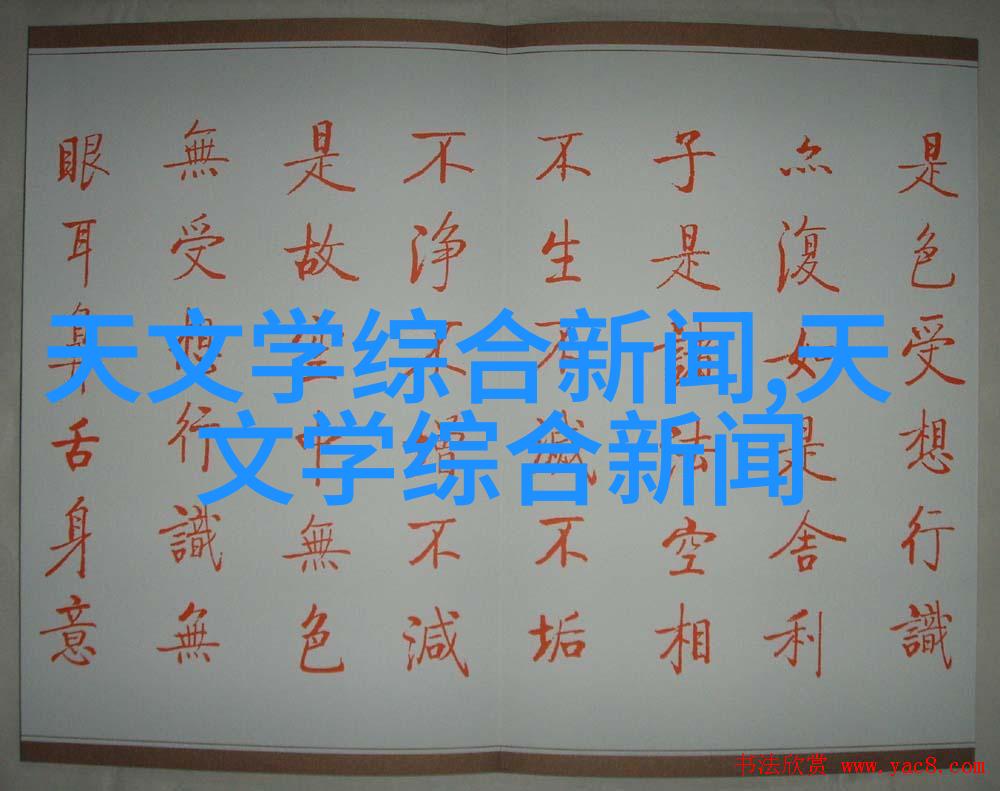 是色受想行識
亦復如是舍利
子是諸法空相
不生不滅不垢
不净不增不減
是故空中無色
無受想行識無
眼耳鼻舌身意
天文学综合新闻,天
文学综合新闻
书法欣赏 www.yac8.com